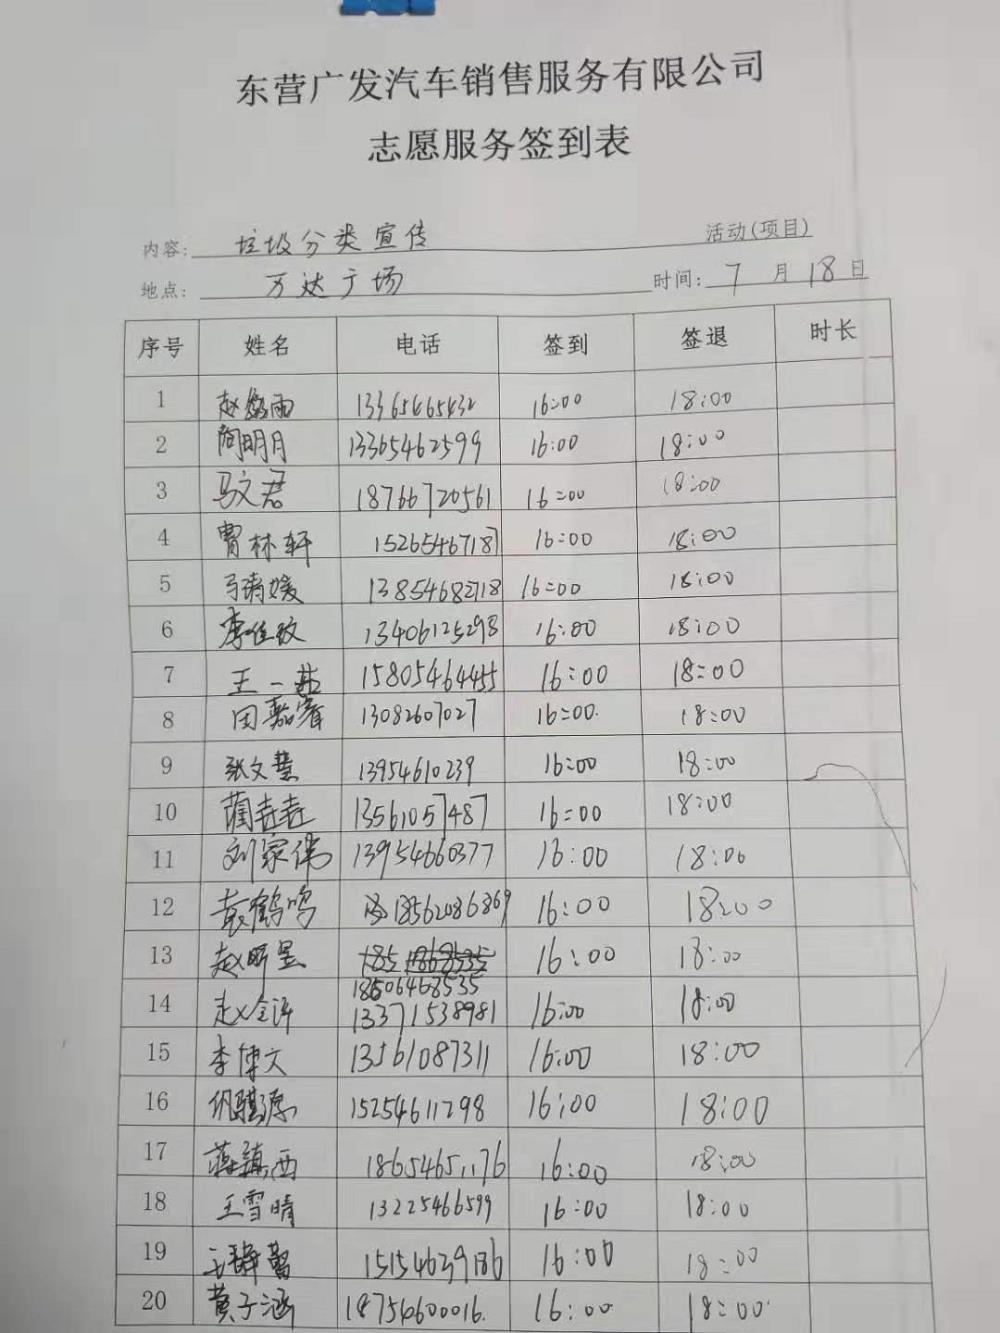 东营广发汽车销售服务有限公司
志愿服务签到表
内容: 垃圾分类宣传 活动(项目)
地点: 万达广场 时间: 7月18日
序号 姓名 电话 签到 签退 时长
1 13365465432 16:00 18:00
2 阎明月 13365462599 16:00 18:00
3 马文君 18766720561 16:00 18:00
4 曹林轩 15265467187 16:00 18:00
5 马靖媛 13854682718 16:00 18:00
6 李佳玟 13406125298 16:00 18:00
7 王一 15805464455 16:00 18:00
8 田嘉睿 13082607027 16:00 18:00
9 张文慧 13954610239 16:00 18:00
10 蔺垚垚 13561057487 16:00 18:00
11 刘家伟 13954660377 16:00 18:00
12 袁鹤鸣 18562086869 16:00 18:00
13 赵昕昱 16:00 18:00
18506468535
14 赵全译 13371538981 16:00 18:00
15 李博文 13561087311 16:00 18:00
16 15254611298 16:00 18:00
17 蒋镇西 18654651176 16:00 18:00
18 王雪晴 13225466599 16:00 18:00
19 15154639186 16:00 18:00
20 黄子涵 18754600016 16:00 18:00